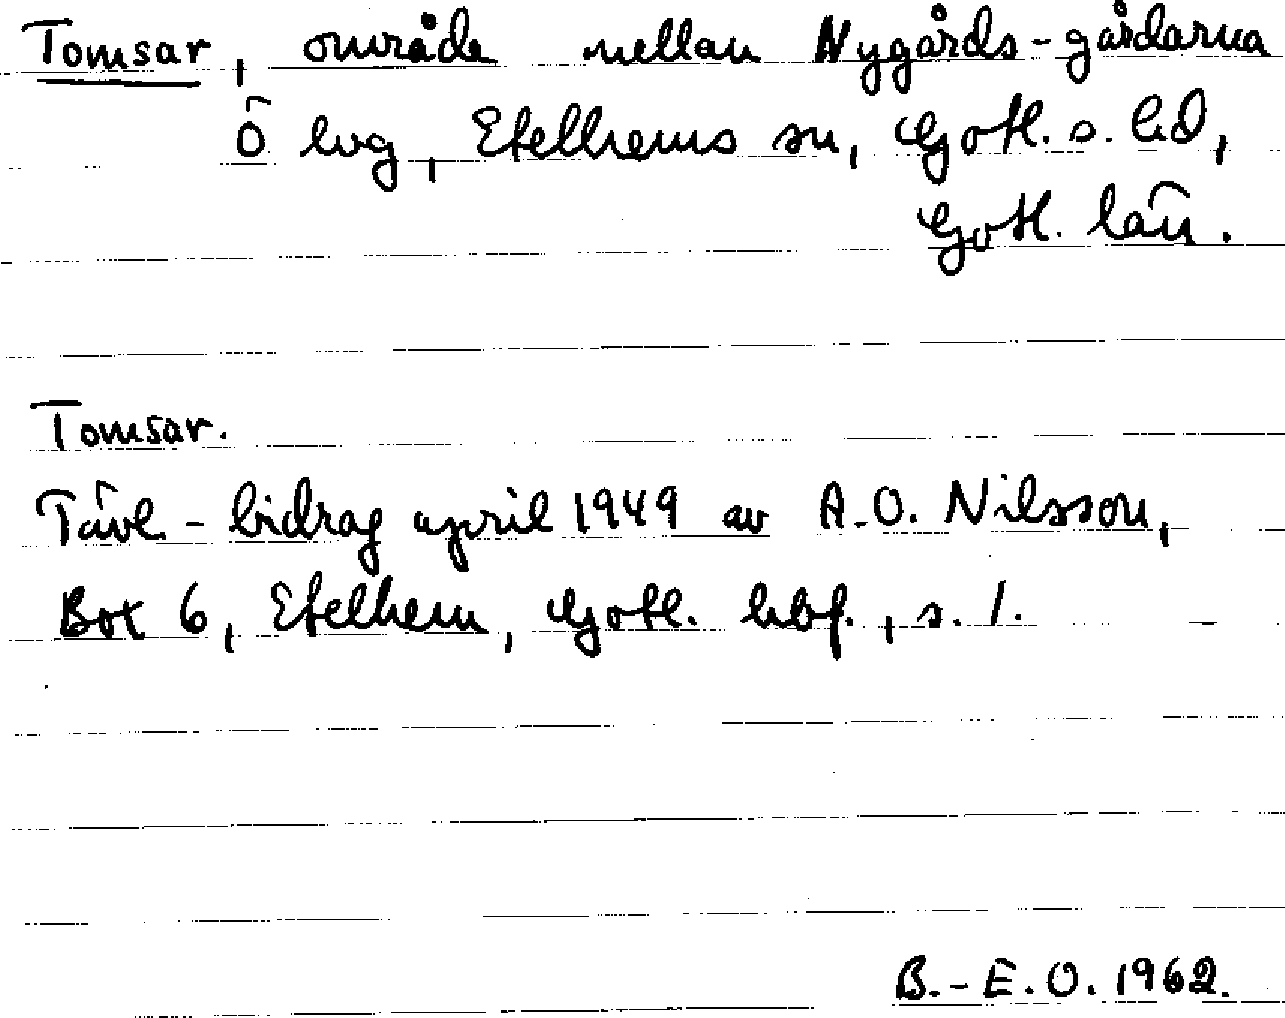 Tomsar, område mellan Nygårds-gårdarna
Ö lvg, Etelhems sn, Gotl. s. hd,
Gotl. län.
Tomsar.
Tävl.-bidrag april 1949 av A.O. Nilsson,
Box 6, Etelhem, Gotl. hbf., s. 1.
B.-E.O. 1962.